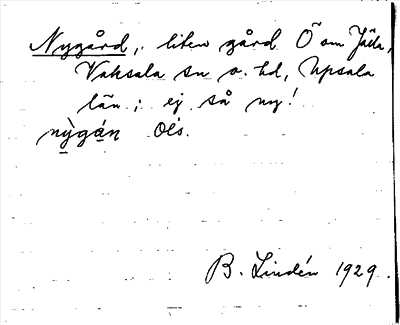 Nygård, liten gård Ö om Jälla,
Vaksala sn o. hd, Upsala
län; ej så ny!
nỳgán Ols.
B. Lindén 1929.